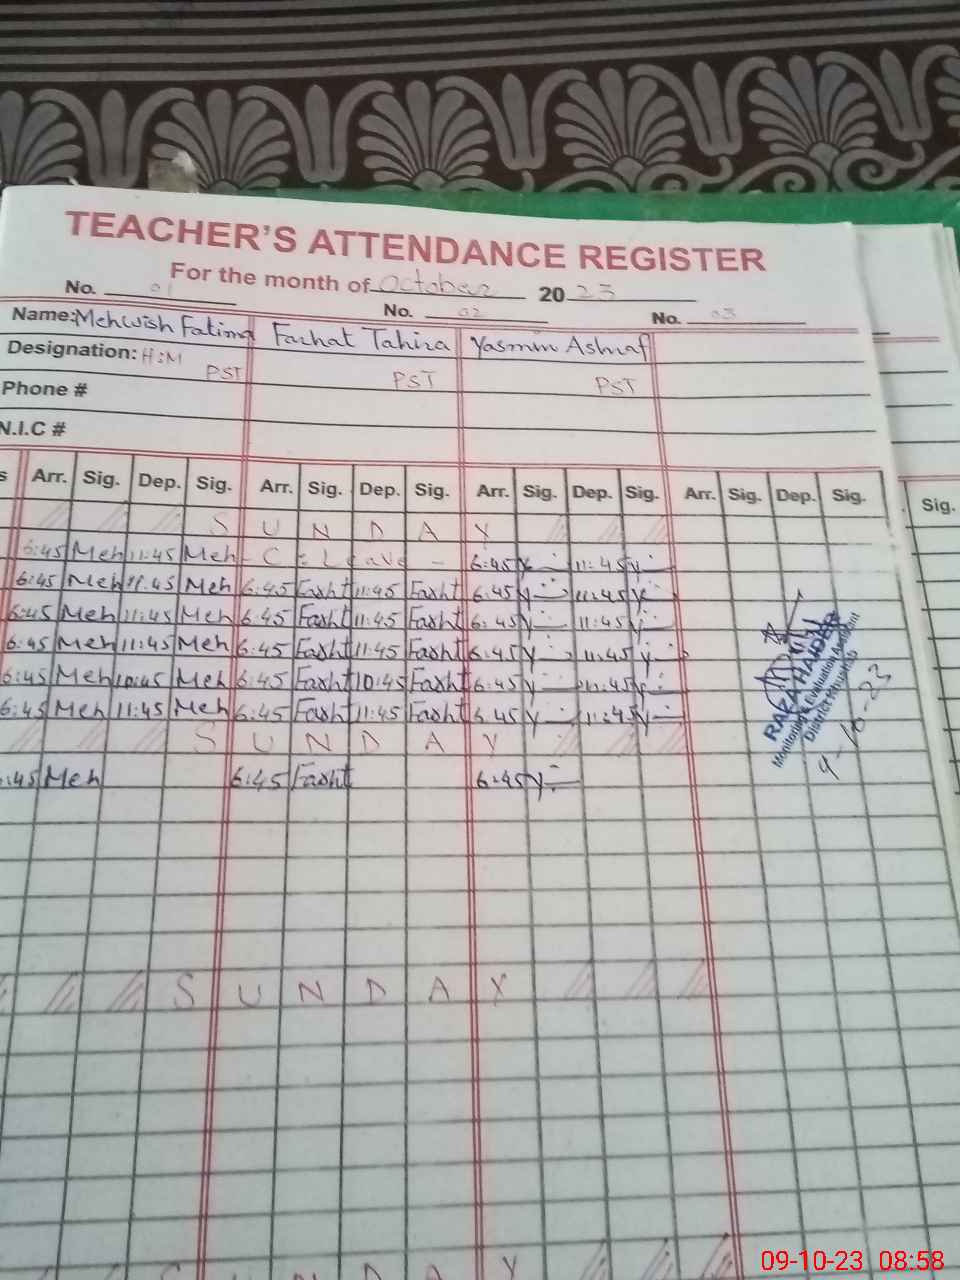 TEACHER'S ATTENDANCE REGISTER
For the month of October 2023
No. 01 No. 02 No. 03
Name: Mehwish Fatima Farhat Tahira Yasmin Ashraf
Designation: H:M PST PST PST
Phone #
N.I.C #
s Arr. Sig. Dep. Sig. Arr. Sig. Dep. Sig. Arr. Sig. Dep. Sig. Arr. Sig. Dep. Sig. Sig.
S U N D A Y
6:45 Meh 11:45 Meh - C : Leave - 6:45 Y 11:45 Y
6:45 Meh 11:45 Meh 6:45 Farht 11:45 Farht 6:45 Y 11:45 Y
6:45 Meh 11:45 Meh 6:45 Farht 11:45 Farht 6:45 Y 11:45 Y
6:45 Meh 11:45 Meh 6:45 Farht 11:45 Farht 6:45 Y 11:45 Y
6:45 Meh 10:45 Meh 6:45 Farht 10:45 Farht 6:45 Y Y
6:45 Meh 11:45 Meh 6:45 Farht 11:45 Farht 6:45 Y 11:45 Y
S U N D A Y
:45 Meh 6:45 Farht 6:45 Y
RAZA HAIDER
Monitoring & Evaluation Assistant
District
9-10-23
S U N D A Y
N D A Y
09-10-23 08:58